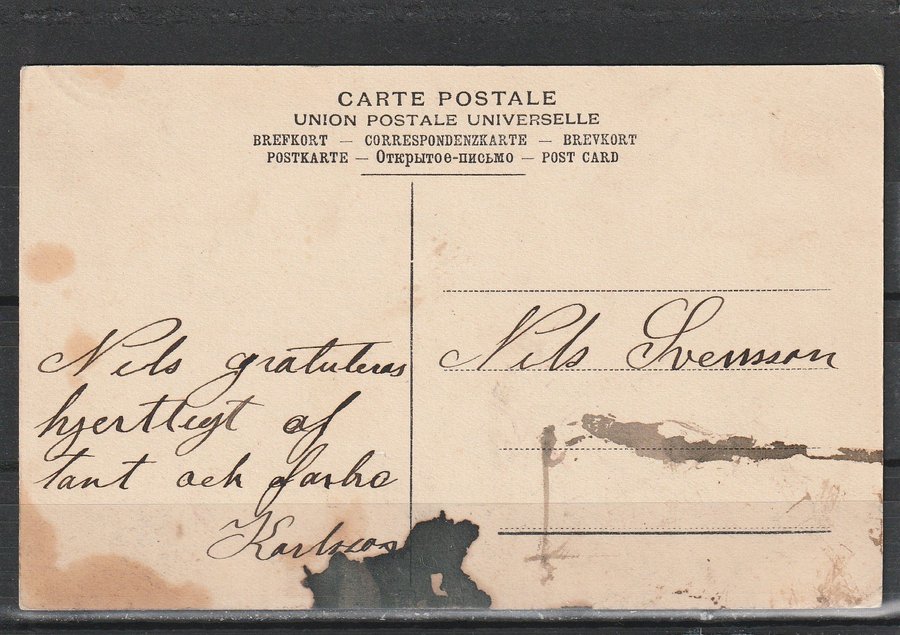 CARTE POSTALE
UNION POSTALE UNIVERSELLE
BREFKORT — CORRESPONDENZKARTE — BREVKORT
POSTKARTE — Открытое-письмо — POST CARD
Nils gratuleras
hjertligt af
tant och farbo
Karlsson
Nils Svensson